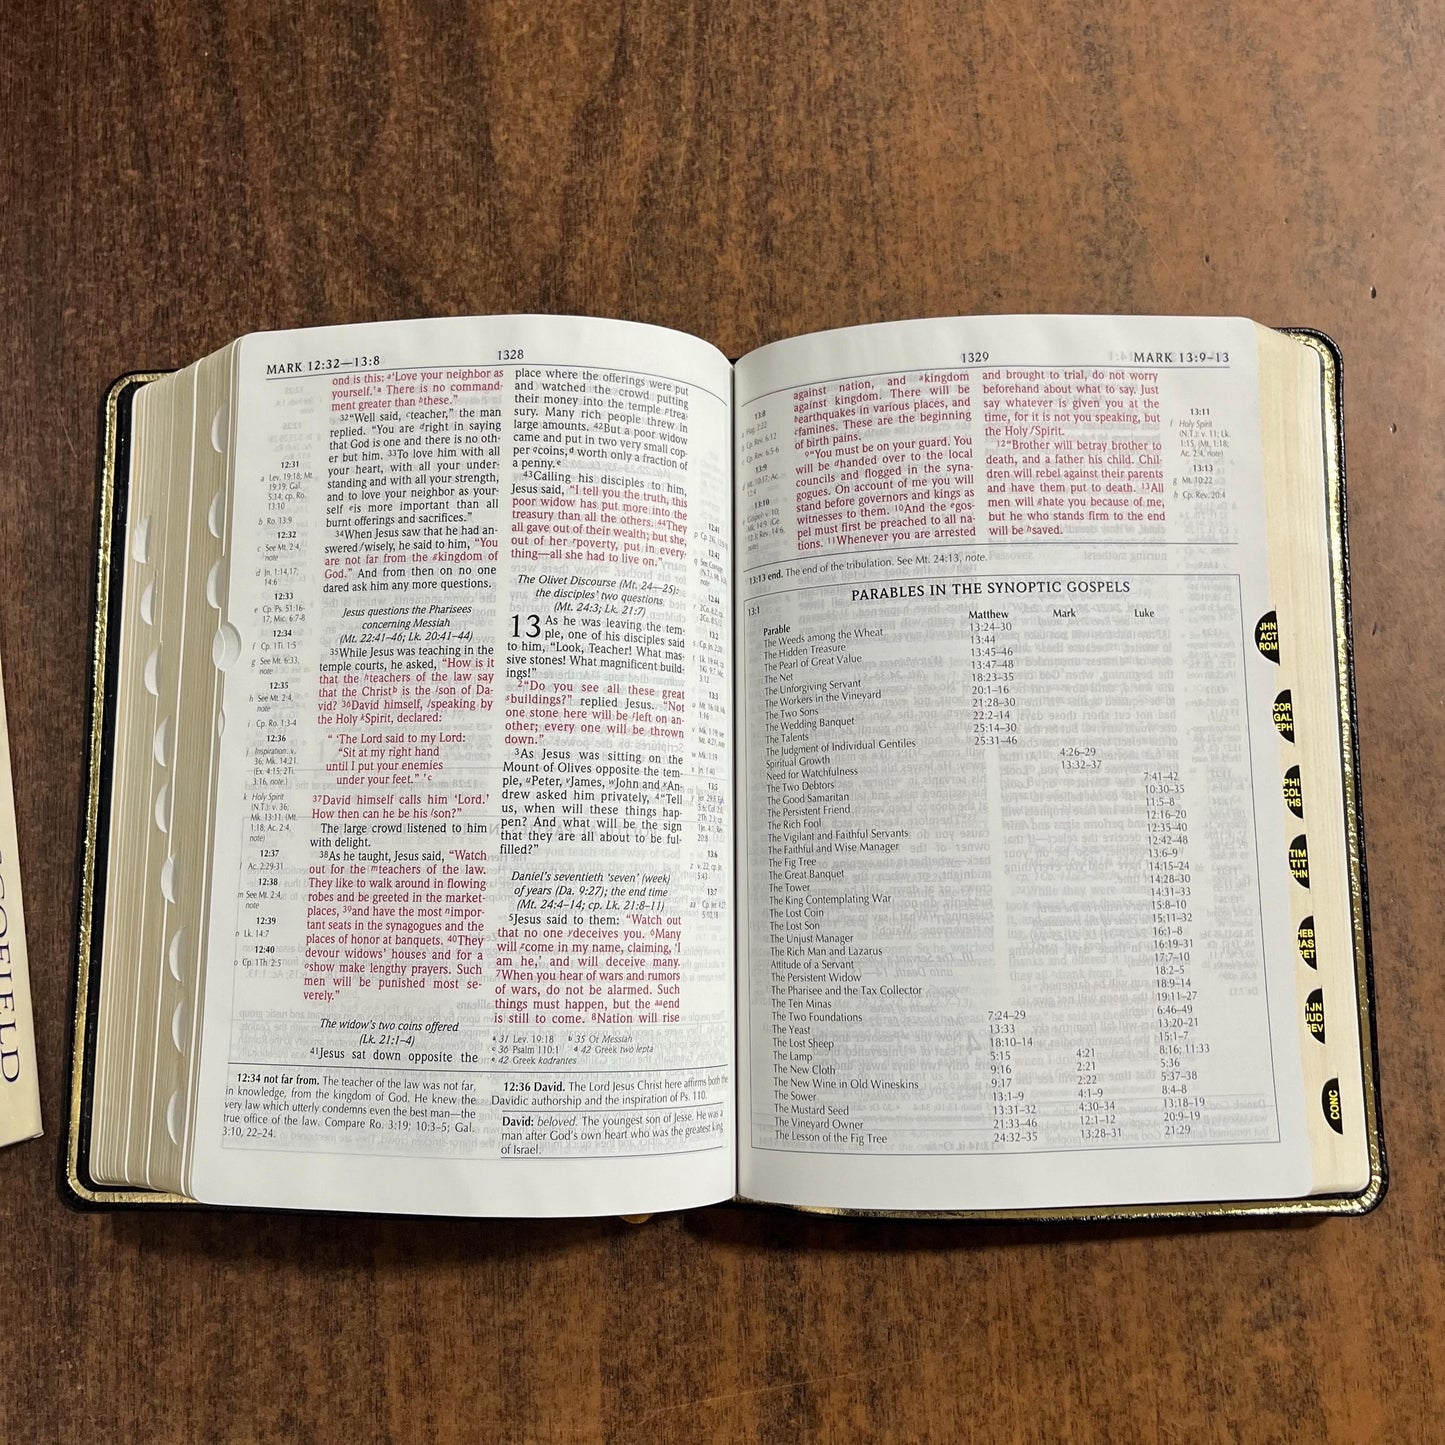 MARK 12:32—13:8
1328
12:31
a Lev. 19:18; Mt.
19:19; Gal.
5:14; cp. Ro.
13:10
b Ro. 13:9
12:32
c See Mt. 2:4,
note
d Jn. 1:14,17;
14:6
12:33
e Cp. Ps. 51:16-
17; Mic. 6:7-8
12:34
f Cp. 1Ti. 1:5
g See Mt. 6:33,
note
12:35
h See Mt. 2:4,
note
i Cp. Ro. 1:3-4
12:36
j Inspiration: v.
36; Mk. 14:21.
(Ex. 4:15; 2Ti.
3:16, note)
k Holy Spirit
(N.T.): v. 36;
Mk. 13:11. (Mt.
1:18; Ac. 2:4,
note)
12:37
l Ac. 2:29-31
12:38
m See Mt. 2:4,
note
12:39
n Lk. 14:7
12:40
o Cp. 1Th. 2:5
ond is this: a'Love your neighbor as
yourself.'a There is no command-
ment greater than bthese."
32"Well said, cteacher," the man
replied. "You are dright in saying
that God is one and there is no oth-
er but him. 33To love him with all
your heart, with all your under-
standing and with all your strength,
and to love your neighbor as your-
self eis more important than all
burnt offerings and sacrifices."
34When Jesus saw that he had an-
swered fwisely, he said to him, "You
are not far from the gkingdom of
God." And from then on no one
dared ask him any more questions.
Jesus questions the Pharisees
concerning Messiah
(Mt. 22:41–46; Lk. 20:41–44)
35While Jesus was teaching in the
temple courts, he asked, "How is it
that the hteachers of the law say
that the Christb is the ison of Da-
vid? 36David himself, jspeaking by
the Holy kSpirit, declared:
" 'The Lord said to my Lord:
"Sit at my right hand
until I put your enemies
under your feet." 'c
37David himself calls him 'Lord.'
How then can he be his lson?"
The large crowd listened to him
with delight.
38As he taught, Jesus said, "Watch
out for the mteachers of the law.
They like to walk around in flowing
robes and be greeted in the market-
places, 39and have the most nimpor-
tant seats in the synagogues and the
places of honor at banquets. 40They
devour widows' houses and for a
oshow make lengthy prayers. Such
men will be punished most se-
verely."
The widow's two coins offered
(Lk. 21:1–4)
41Jesus sat down opposite the
place where the offerings were put
and watched the crowd putting
their money into the temple ptrea-
sury. Many rich people threw in
large amounts. 42But a poor widow
came and put in two very small cop-
per qcoins,d worth only a fraction of
a penny.e
43Calling his disciples to him,
Jesus said, "I tell you the truth, this
poor widow has put more into the
treasury than all the others. 44They
all gave out of their wealth; but she,
out of her rpoverty, put in every-
thing—all she had to live on."
The Olivet Discourse (Mt. 24—25):
the disciples' two questions
(Mt. 24:3; Lk. 21:7)
13 As he was leaving the tem-
ple, one of his disciples said
to him, "Look, Teacher! What mas-
sive stones! What magnificent build-
ings!"
2"Do you see all these great
sbuildings?" replied Jesus. "Not
one stone here will be tleft on an-
other; every one will be thrown
down."
3As Jesus was sitting on the
Mount of Olives opposite the tem-
ple, uPeter, vJames, wJohn and xAn-
drew asked him privately, 4"Tell
us, when will these things hap-
pen? And what will be the sign
that they are all about to be ful-
filled?"
Daniel's seventieth 'seven' (week)
of years (Da. 9:27); the end time
(Mt. 24:4–14; cp. Lk. 21:8–11)
5Jesus said to them: "Watch out
that no one ydeceives you. 6Many
will zcome in my name, claiming, 'I
am he,' and will deceive many.
7When you hear of wars and rumors
of wars, do not be alarmed. Such
things must happen, but the aaend
is still to come. 8Nation will rise
a 31 Lev. 19:18 b 35 Or Messiah
c 36 Psalm 110:1 d 42 Greek two lepta
e 42 Greek kodrantes
12:41
12:42
12:44
13:2
13:3
13:5
13:6
13:7
12:34 not far from. The teacher of the law was not far,
in knowledge, from the kingdom of God. He knew the
very law which utterly condemns even the best man—the
true office of the law. Compare Ro. 3:19; 10:3–5; Gal.
3:10, 22–24.
12:36 David. The Lord Jesus Christ here affirms both the
Davidic authorship and the inspiration of Ps. 110.
David: beloved. The youngest son of Jesse. He was a
man after God's own heart who was the greatest king
of Israel.
1329
MARK 13:9–13
13:8
a Hag. 2:22
b Cp. Rev. 6:12
c Cp. Rev. 6:5-6
13:9
d Mt. 10:37; Ac.
12:4
13:10
against nation, and akingdom
against kingdom. There will be
bearthquakes in various places, and
cfamines. These are the beginning
of birth pains.
9"You must be on your guard. You
will be dhanded over to the local
councils and flogged in the syna-
gogues. On account of me you will
stand before governors and kings as
witnesses to them. 10And the egos-
pel must first be preached to all na-
tions. 11Whenever you are arrested
and brought to trial, do not worry
beforehand about what to say. Just
say whatever is given you at the
time, for it is not you speaking, but
the Holy fSpirit.
12"Brother will betray brother to
death, and a father his child. Chil-
dren will rebel against their parents
and have them put to death. 13All
men will ghate you because of me,
but he who stands firm to the end
will be hsaved.
13:11
f Holy Spirit
(N.T.): v. 11; Lk.
1:15. (Mt. 1:18;
Ac. 2:4, note)
13:13
g Mt. 10:22
h Cp. Rev. 20:4
13:13 end. The end of the tribulation. See Mt. 24:13, note.
13:1
PARABLES IN THE SYNOPTIC GOSPELS
Parable Matthew Mark Luke
The Weeds among the Wheat 13:24–30
The Hidden Treasure 13:44
The Pearl of Great Value 13:45–46
The Net 13:47–48
The Unforgiving Servant 18:23–35
The Workers in the Vineyard 20:1–16
The Two Sons 21:28–30
The Wedding Banquet 22:2–14
The Talents 25:14–30
The Judgment of Individual Gentiles 25:31–46
Spiritual Growth 4:26–29
Need for Watchfulness 13:32–37
The Two Debtors 7:41–42
The Good Samaritan 10:30–35
The Persistent Friend 11:5–8
The Rich Fool 12:16–20
The Vigilant and Faithful Servants 12:35–40
The Faithful and Wise Manager 12:42–48
The Fig Tree 13:6–9
The Great Banquet 14:15–24
The Tower 14:28–30
The King Contemplating War 14:31–33
The Lost Coin 15:8–10
The Lost Son 15:11–32
The Unjust Manager 16:1–8
The Rich Man and Lazarus 16:19–31
Attitude of a Servant 17:7–10
The Persistent Widow 18:2–5
The Pharisee and the Tax Collector 18:9–14
The Ten Minas 19:11–27
The Two Foundations 7:24–29 6:46–49
The Yeast 13:33 13:20–21
The Lost Sheep 18:10–14 15:1–7
The Lamp 5:15 4:21 8:16; 11:33
The New Cloth 9:16 2:21 5:36
The New Wine in Old Wineskins 9:17 2:22 5:37–38
The Sower 13:1–9 4:1–9 8:4–8
The Mustard Seed 13:31–32 4:30–34 13:18–19
The Vineyard Owner 21:33–46 12:1–12 20:9–19
The Lesson of the Fig Tree 24:32–35 13:28–31 21:29
JHN
ACT
ROM
COR
GAL
EPH
PHI
COL
THS
TIM
TIT
PHN
HEB
JAS
PET
1JN
JUD
REV
CONC